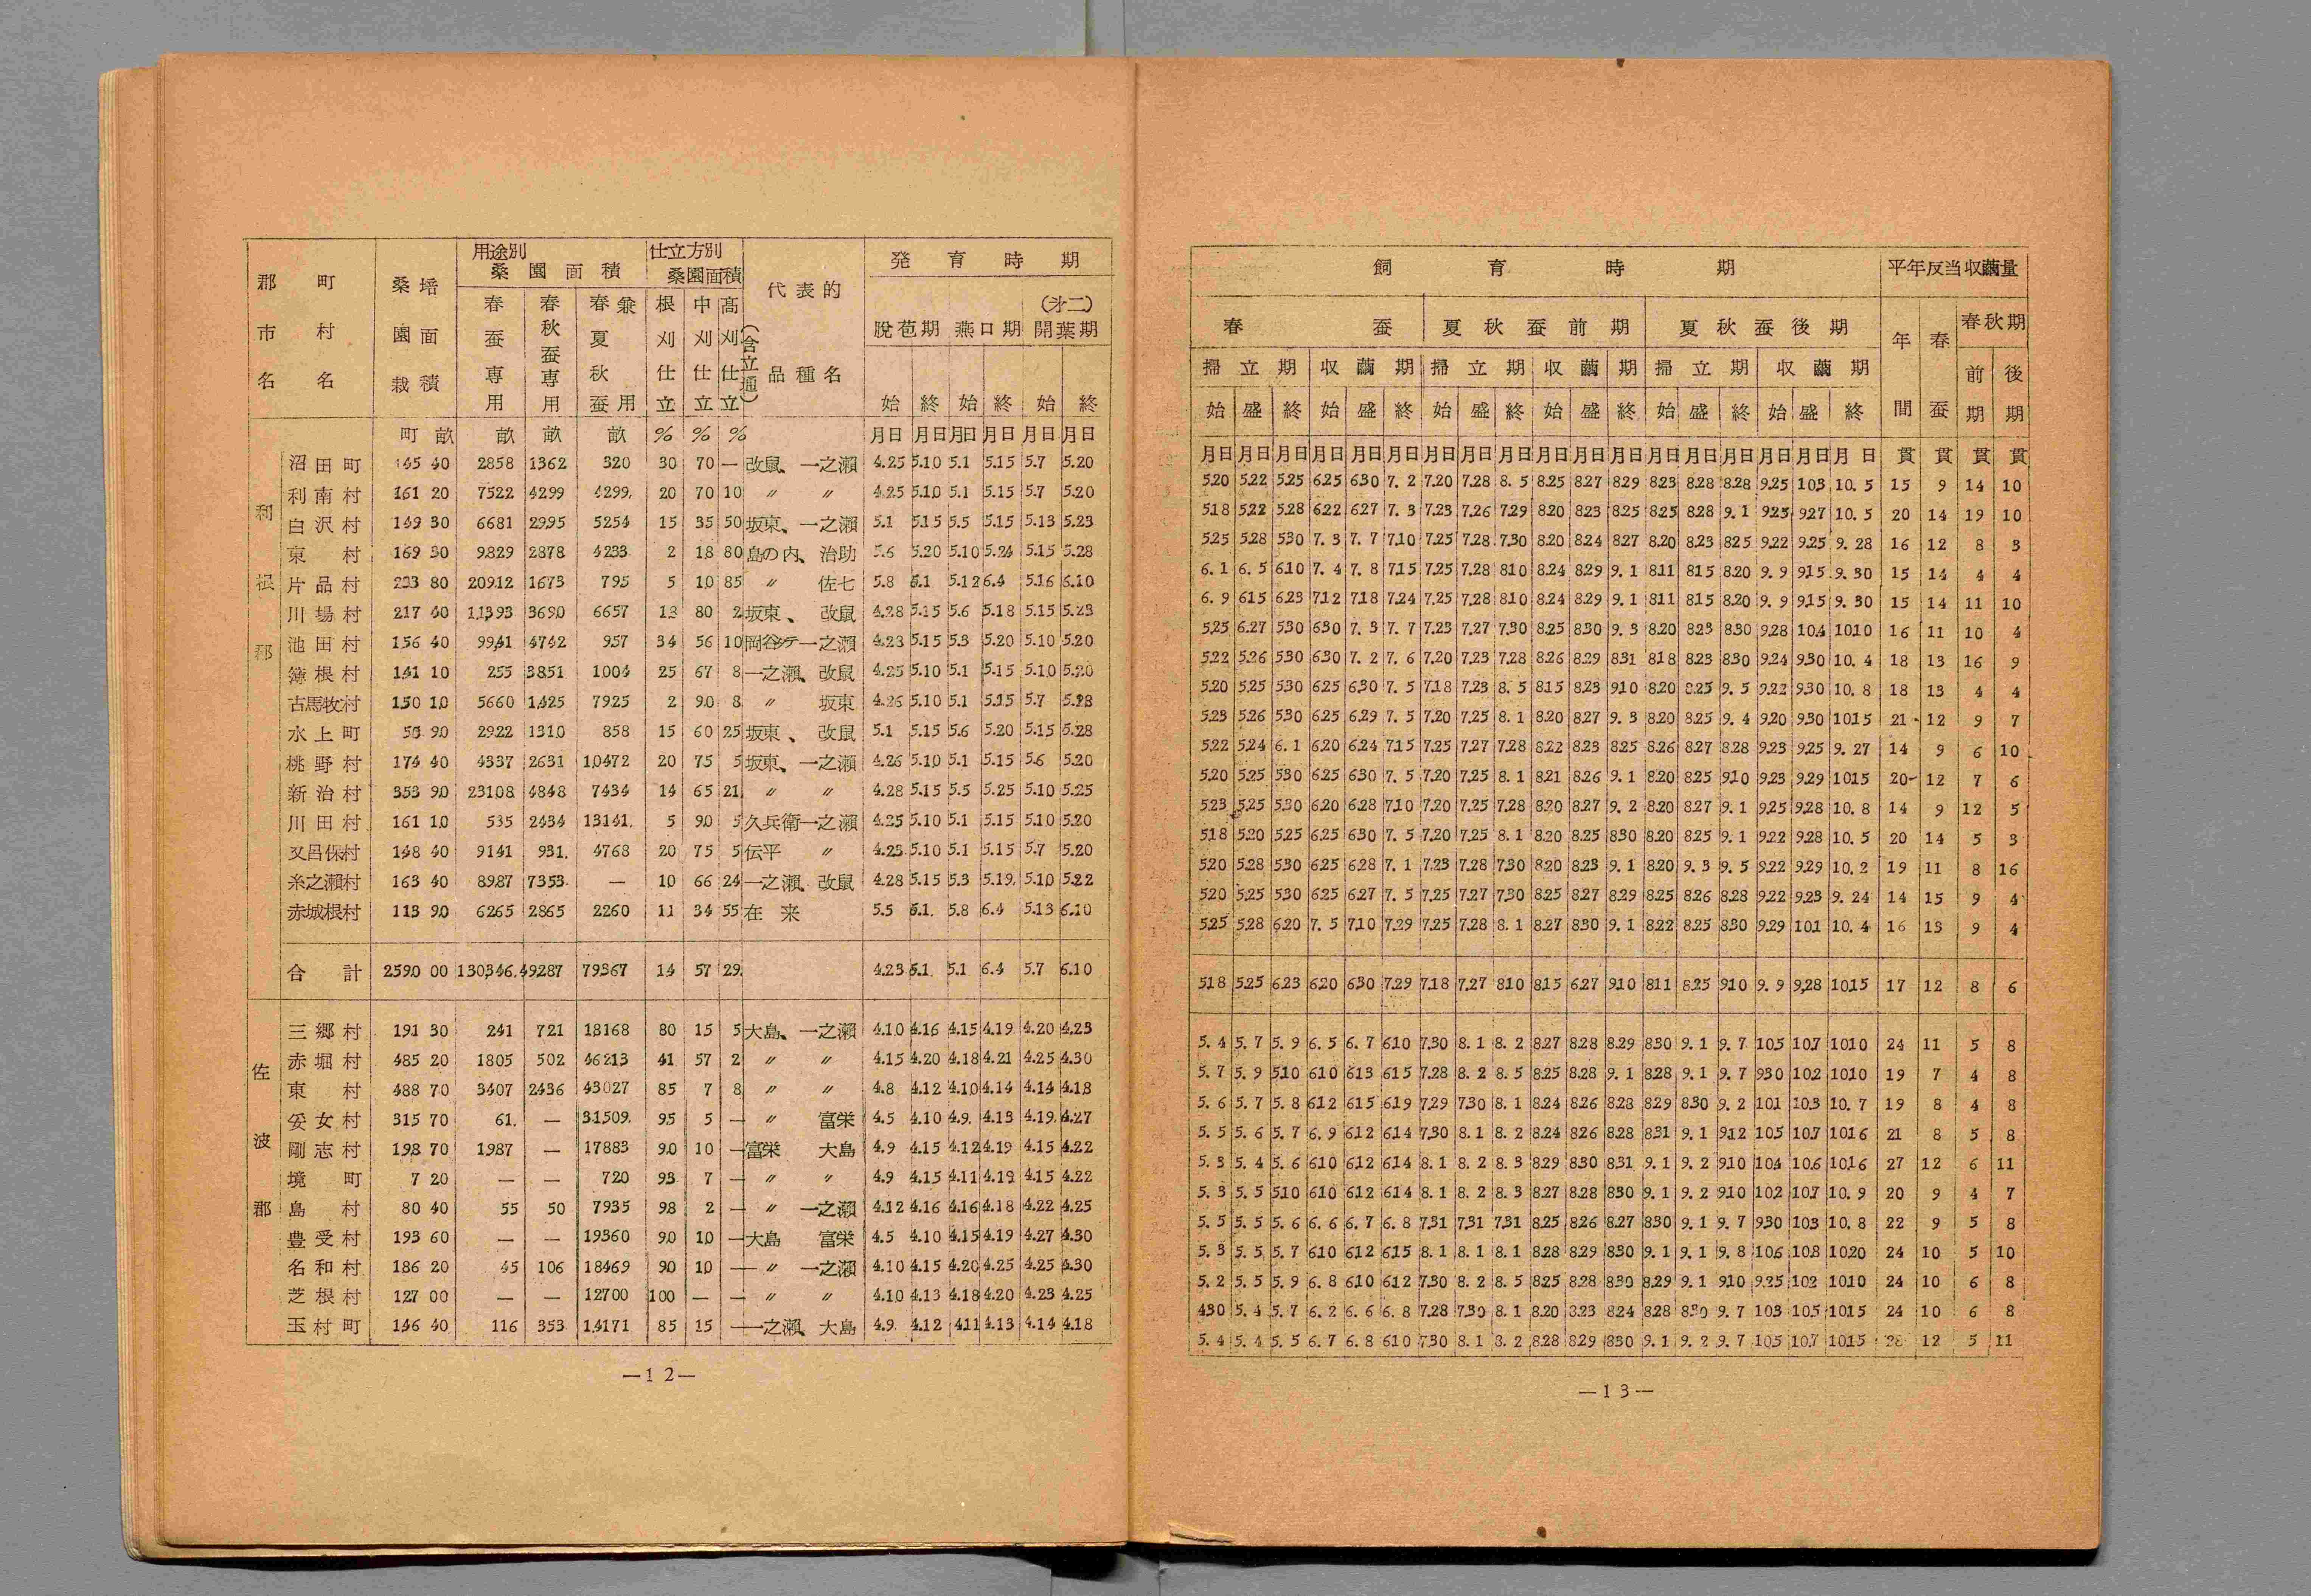 郡市名 町村名 桑園栽培面積 用途別桑園面積 仕立方別桑園面積 代表的品種名 発育時期
春蚕専用 春秋蚕専用 春夏秋蚕兼用 根刈仕立 中刈仕立 高刈仕立(含立通) 脱苞期 燕口期 (才二)開葉期
始 終 始 終 始 終
町 畝 畝 畝 畝 % % % 月日 月日 月日 月日 月日 月日
利根郡
沼田町 145 40 2858 1362 320 30 70 — 改鼠、一之瀬 4.25 5.10 5.1 5.15 5.7 5.20
利南村 161 20 7522 4299 4299. 20 70 10 〃 〃 4.25 5.10 5.1 5.15 5.7 5.20
白沢村 149 30 6681 2995 5254 15 35 50 坂東、一之瀬 5.1 5.15 5.5 5.15 5.13 5.23
東村 169 30 9829 2878 4233 2 18 80 島の内、治助 5.6 5.20 5.10 5.24 5.15 5.28
片品村 233 80 20912 1673 795 5 10 85 〃 佐七 5.8 6.1 5.12 6.4 5.16 6.10
川場村 217 40 11393 3690 6657 13 80 2 坂東、改鼠 4.28 5.15 5.6 5.18 5.15 5.23
池田村 156 40 9941 4742 957 34 56 10 一之瀬 4.23 5.15 5.3 5.20 5.10 5.20
薄根村 141 10 255 3851 1004 25 67 8 一之瀬、改鼠 4.25 5.10 5.1 5.15 5.10 5.20
古馬牧村 150 10 5660 1425 7925 2 90 8 〃 坂東 4.26 5.10 5.1 5.15 5.7 5.28
水上町 90 2922 1310 858 15 60 25 坂東、改鼠 5.1 5.15 5.6 5.20 5.15 5.28
桃野村 174 40 4337 2631 10472 20 75 5 坂東、一之瀬 4.26 5.10 5.1 5.15 5.6 5.20
新治村 353 90 23108 4848 7434 14 65 21 〃 〃 4.28 5.15 5.5 5.25 5.10 5.25
川田村 161 10 535 2434 13141. 5 90 5 久兵衛一之瀬 4.25 5.10 5.1 5.15 5.10 5.20
久呂保村 148 40 9141 931. 4768 20 75 5 伝平 〃 4.25 5.10 5.1 5.15 5.7 5.20
糸之瀬村 163 40 8987 7353 — 10 66 24 一之瀬、改鼠 4.28 5.15 5.3 5.19 5.10 5.22
赤城根村 113 90 6265 2865 2260 11 34 55 在来 5.5 6.1. 5.8 6.4 5.13 6.10
合計 2590 00 130346. 49287 79367 14 57 29 4.23 6.1. 5.1 6.4 5.7 6.10
佐波郡
三郷村 191 30 241 721 18168 80 15 5 大島、一之瀬 4.10 4.16 4.15 4.19 4.20 4.23
赤堀村 485 20 1805 502 46213 41 57 2 〃 〃 4.15 4.20 4.18 4.21 4.25 4.30
東村 488 70 3407 2436 43027 85 7 8 〃 〃 4.8 4.12 4.10 4.14 4.14 4.18
采女村 315 70 61. — 31509. 95 5 — 〃 富栄 4.5 4.10 4.9. 4.13 4.19. 4.27
剛志村 198 70 1987 — 17883 90 10 — 富栄 大島 4.9 4.15 4.12 4.19 4.15 4.22
境町 7 20 — — 720 93 7 — 〃 〃 4.9 4.15 4.11 4.19 4.15 4.22
島村 80 40 55 50 7935 98 2 — 〃 一之瀬 4.12 4.16 4.16 4.18 4.22 4.25
豊受村 193 60 — — 19360 90 10 — 大島 富栄 4.5 4.10 4.15 4.19 4.27 4.30
名和村 186 20 45 106 18469 90 10 — 〃 一之瀬 4.10 4.15 4.20 4.25 4.25 4.30
芝根村 127 00 — — 12700 100 — — 〃 〃 4.10 4.13 4.18 4.20 4.23 4.25
玉村町 146 40 116 353 14171 85 15 — 一之瀬、大島 4.9 4.12 4.11 4.13 4.14 4.18
—12—
飼育時期 平年反当収繭量
春蚕 夏秋蚕前期 夏秋蚕後期 年間 春蚕 春秋期
掃立期 収繭期 掃立期 収繭期 掃立期 収繭期 前期 後期
始 盛 終 始 盛 終 始 盛 終 始 盛 終 始 盛 終 始 盛 終
月日 月日 月日 月日 月日 月日 月日 月日 月日 月日 月日 月日 月日 月日 月日 月日 月日 月日 貫 貫 貫 貫
5.20 5.22 5.25 6.25 6.30 7.2 7.20 7.28 8.5 8.25 8.27 8.29 8.23 8.28 8.28 9.25 10.3 10.5 15 9 14 10
5.18 5.22 5.28 6.22 6.27 7.3 7.23 7.26 7.29 8.20 8.23 8.25 8.25 8.28 9.1 9.25 9.27 10.5 20 14 19 10
5.25 5.28 5.30 7.3 7.7 7.10 7.25 7.28 7.30 8.20 8.24 8.27 8.20 8.23 8.25 9.22 9.25 9.28 16 12 8 3
6.1 6.5 6.10 7.4 7.8 7.15 7.25 7.28 8.10 8.24 8.29 9.1 8.11 8.15 8.20 9.9 9.15 9.30 15 14 4 4
6.9 6.15 6.23 7.12 7.18 7.24 7.25 7.28 8.10 8.24 8.29 9.1 8.11 8.15 8.20 9.9 9.15 9.30 15 14 11 10
5.25 6.27 5.30 6.30 7.3 7.7 7.23 7.27 7.30 8.25 8.30 9.3 8.20 8.23 8.30 9.28 10.4 10.10 16 11 10 4
5.22 5.26 5.30 6.30 7.2 7.6 7.20 7.23 7.28 8.26 8.29 8.31 8.18 8.23 8.30 9.24 9.30 10.4 18 13 16 9
5.20 5.25 5.30 6.25 6.30 7.5 7.18 7.23 8.5 8.15 8.23 9.10 8.20 8.25 9.5 9.22 9.30 10.8 18 13 4 4
5.23 5.26 5.30 6.25 6.29 7.5 7.20 7.25 8.1 8.20 8.27 9.3 8.20 8.25 9.4 9.20 9.30 10.15 21 12 9 7
5.22 5.24 6.1 6.20 6.24 7.15 7.25 7.27 7.28 8.22 8.23 8.25 8.26 8.27 8.28 9.23 9.25 9.27 14 9 6 10
5.20 5.25 5.30 6.25 6.30 7.5 7.20 7.25 8.1 8.21 8.26 9.1 8.20 8.25 9.10 9.23 9.29 10.15 20 12 7 6
5.23 5.25 5.30 6.20 6.28 7.10 7.20 7.25 7.28 8.20 8.27 9.2 8.20 8.27 9.1 9.25 9.28 10.8 14 9 12 5
5.18 5.20 5.25 6.25 6.30 7.5 7.20 7.25 8.1 8.20 8.25 8.30 8.20 8.25 9.1 9.22 9.28 10.5 20 14 5 3
5.20 5.28 5.30 6.25 6.28 7.1 7.23 7.28 7.30 8.20 8.23 9.1 8.20 9.3 9.5 9.22 9.29 10.2 19 11 8 16
5.20 5.25 5.30 6.25 6.27 7.5 7.25 7.27 7.30 8.25 8.27 8.29 8.25 8.26 8.28 9.22 9.23 9.24 14 15 9 4
5.25 5.28 6.20 7.5 7.10 7.29 7.25 7.28 8.1 8.27 8.30 9.1 8.22 8.25 8.30 9.29 10.1 10.4 16 13 9 4
5.18 5.25 6.23 6.20 6.30 7.29 7.18 7.27 8.10 8.15 6.27 9.10 8.11 8.25 9.10 9.9 9.28 10.15 17 12 8 6
5.4 5.7 5.9 6.5 6.7 6.10 7.30 8.1 8.2 8.27 8.28 8.29 8.30 9.1 9.7 10.5 10.7 10.10 24 11 5 8
5.7 5.9 5.10 6.10 6.13 6.15 7.28 8.2 8.5 8.25 8.28 9.1 8.28 9.1 9.7 9.30 10.2 10.10 19 7 4 8
5.6 5.7 5.8 6.12 6.15 6.19 7.29 7.30 8.1 8.24 8.26 8.28 8.29 8.30 9.2 10.1 10.3 10.7 19 8 4 8
5.5 5.6 5.7 6.9 6.12 6.14 7.30 8.1 8.2 8.24 8.26 8.28 8.31 9.1 9.12 10.5 10.7 10.16 21 8 5 8
5.3 5.4 5.6 6.10 6.12 6.14 8.1 8.2 8.3 8.29 8.30 8.31 9.1 9.2 9.10 10.4 10.6 10.16 27 12 6 11
5.3 5.5 5.10 6.10 6.12 6.14 8.1 8.2 8.3 8.27 8.28 8.30 9.1 9.2 9.10 10.2 10.7 10.9 20 9 4 7
5.5 5.5 5.6 6.6 6.7 6.8 7.31 7.31 7.31 8.25 8.26 8.27 8.30 9.1 9.7 9.30 10.3 10.8 22 9 5 8
5.3 5.5 5.7 6.10 6.12 6.15 8.1 8.1 8.1 8.28 8.29 8.30 9.1 9.1 9.8 10.6 10.8 10.20 24 10 5 10
5.2 5.5 5.9 6.8 6.10 6.12 7.30 8.2 8.5 8.25 8.28 8.30 8.29 9.1 9.10 9.25 10.2 10.10 24 10 6 8
4.30 5.4 5.7 6.2 6.6 6.8 7.28 7.30 8.1 8.20 8.23 8.24 8.28 8.30 9.7 10.3 10.5 10.15 24 10 6 8
5.4 5.4 5.5 6.7 6.8 6.10 7.30 8.1 8.2 8.28 8.29 8.30 9.1 9.2 9.7 10.5 10.7 10.15 12 5 11
—13—